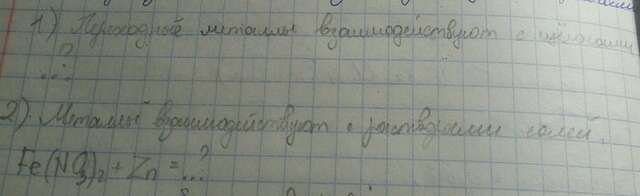 1) Переходные металлы взаимодействуют с щелочами
?
...
2). Металлы взаимодействуют с растворами солей.
Fe(NO₃)₂ + Zn = ...?